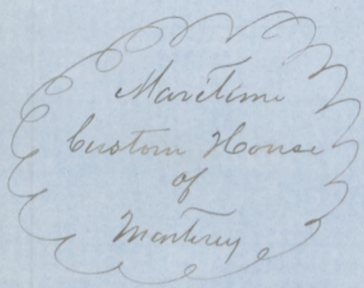 Maritime
Custom House
of
Monterey